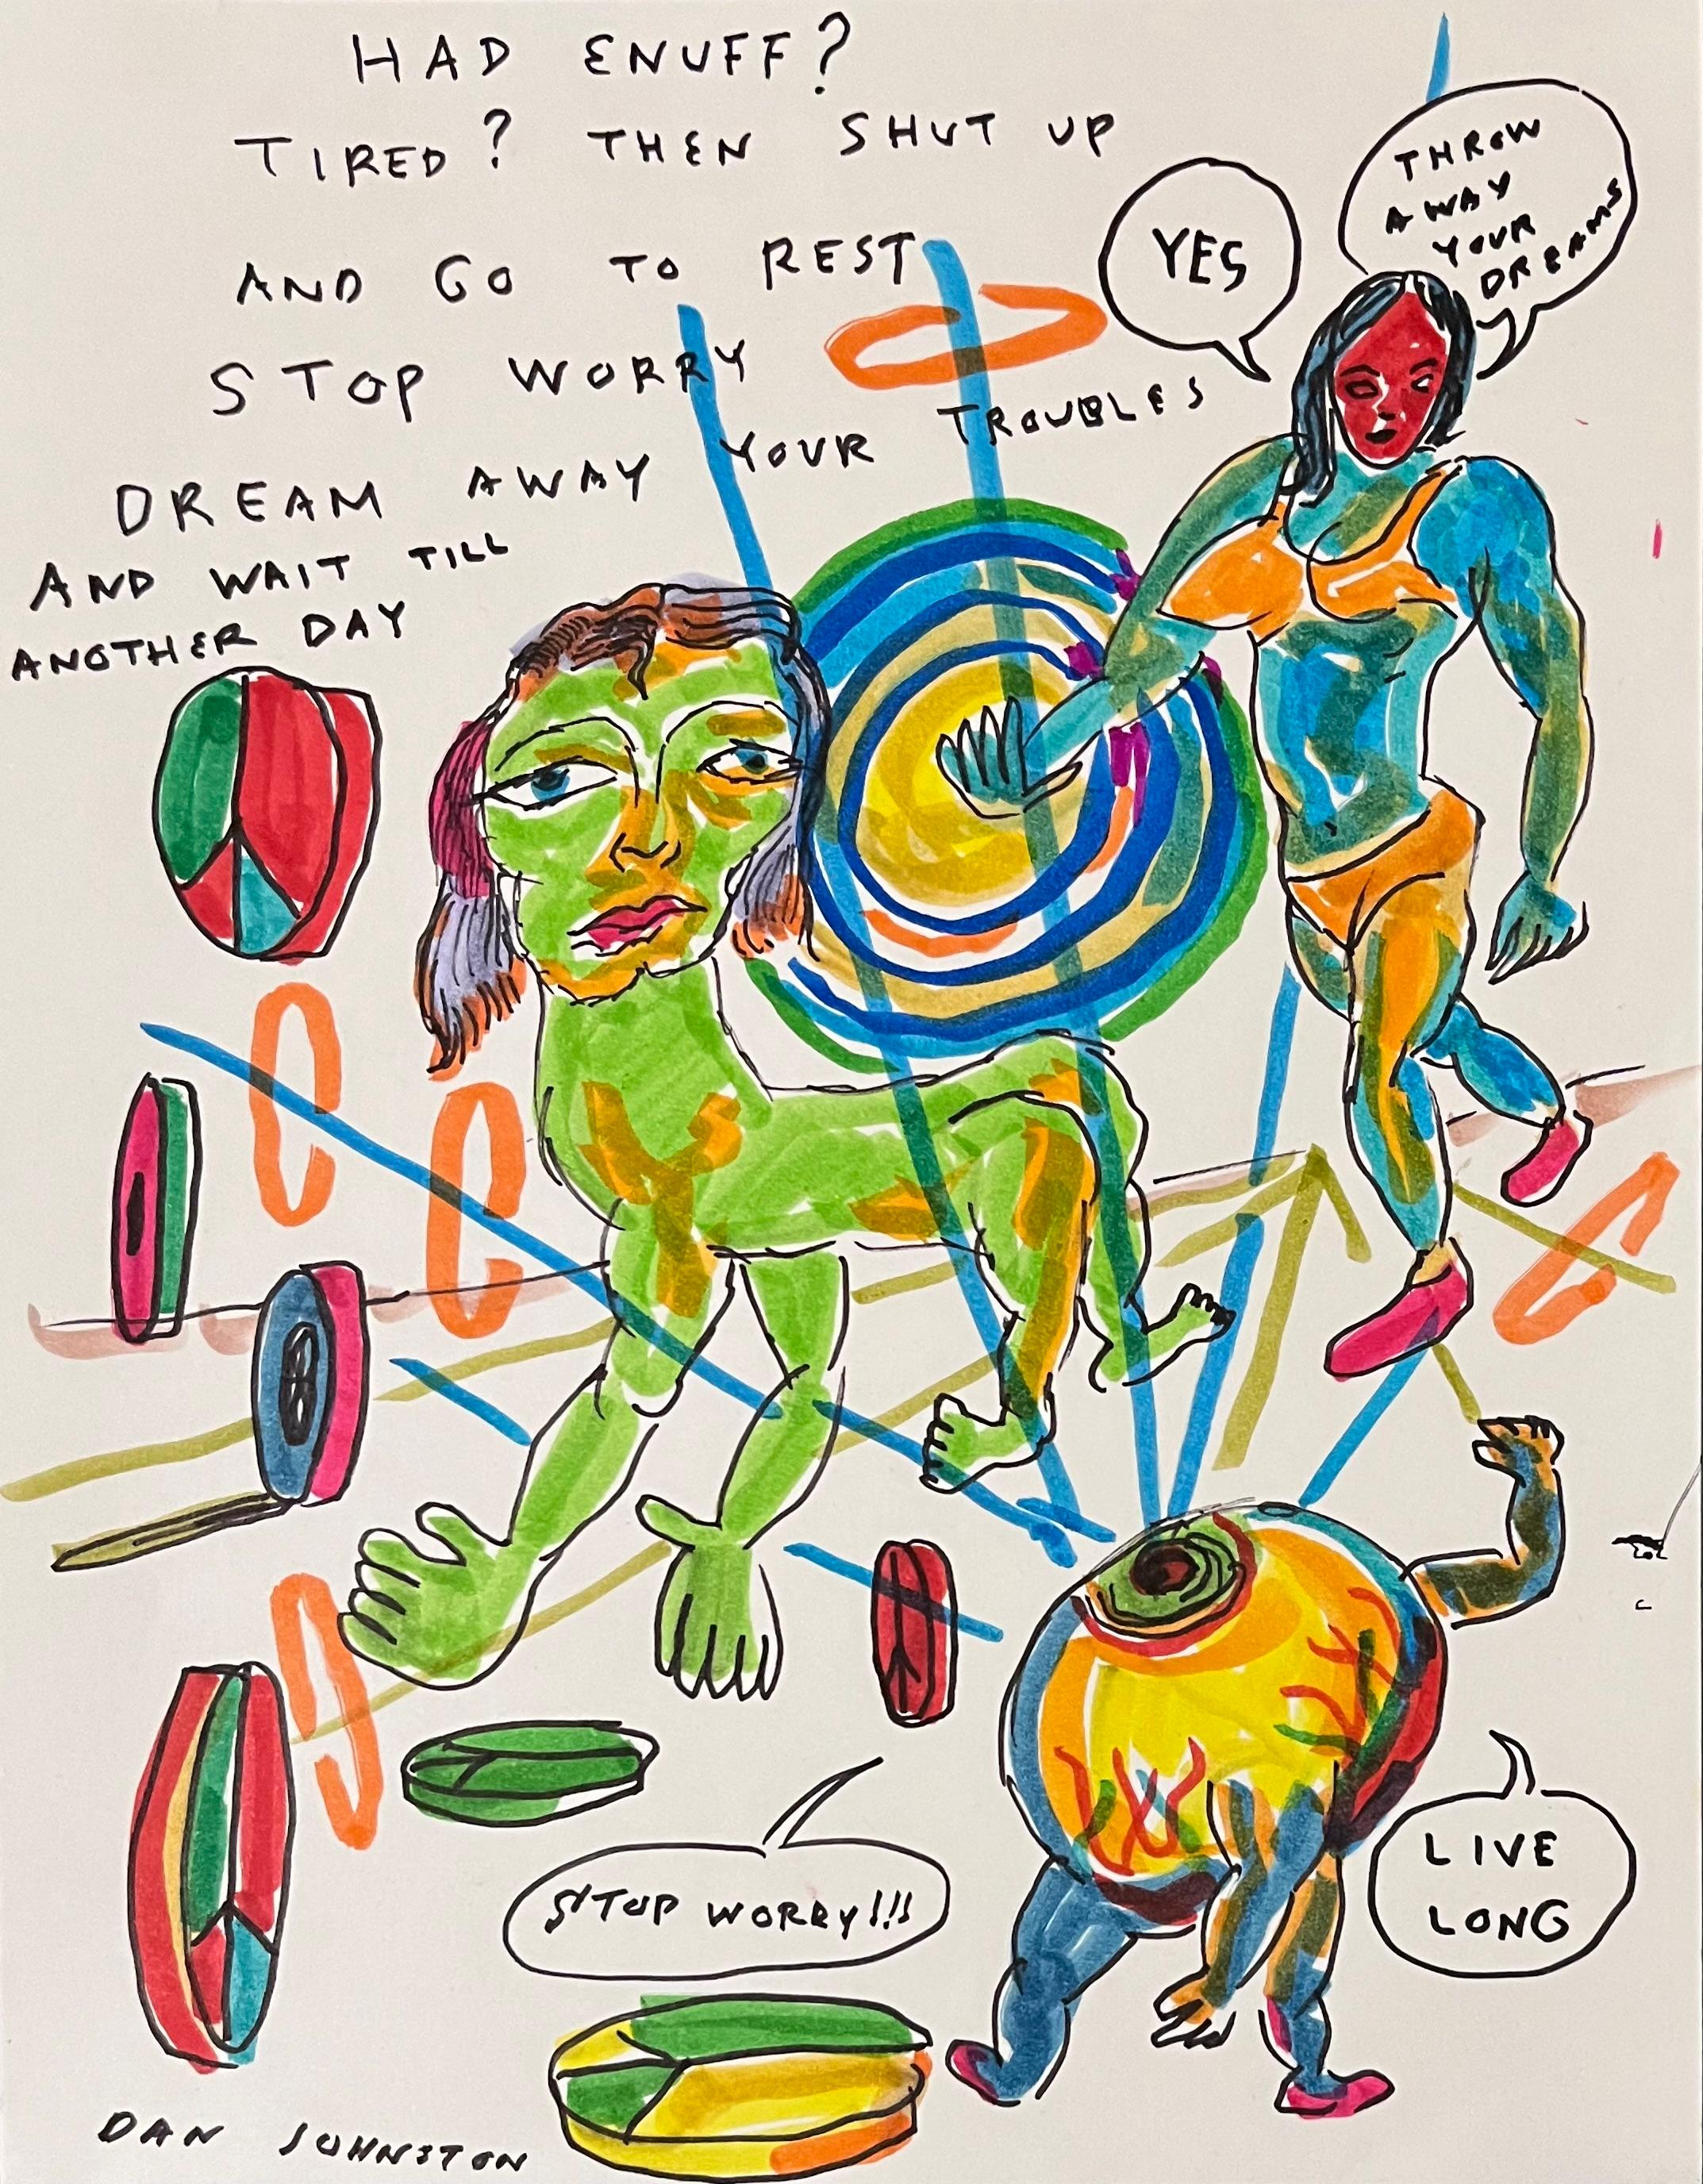 HAD ENUFF?
TIRED? THEN SHUT UP
AND GO TO REST
STOP WORRY
DREAM AWAY YOUR TROUBLES
AND WAIT TILL
ANOTHER DAY
YES
THROW
AWAY
YOUR
DREAMS
STOP WORRY!!!
LIVE
LONG
DAN JOHNSTON